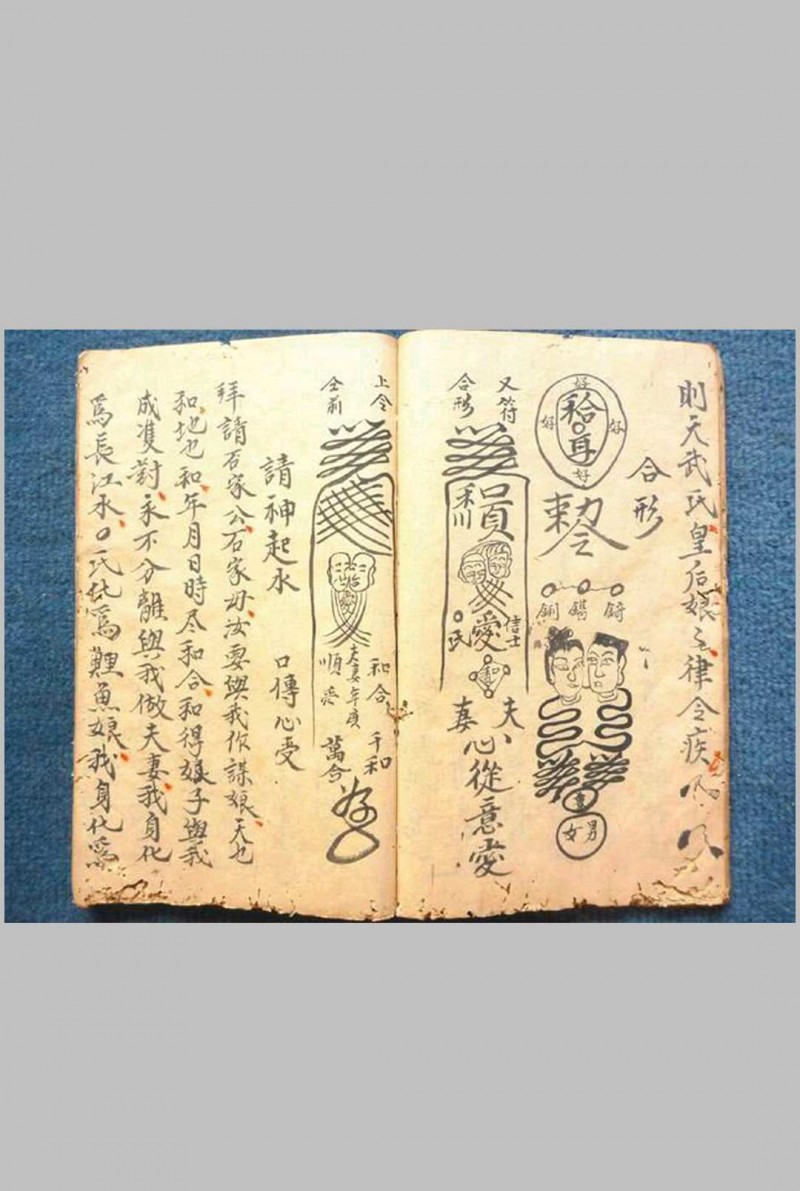 則天武氏皇后娘之律令疾
合形
好
好 好
好
勅令
男
女
又符
合形
信士
氏
愛
夫
妻
心從意愛
上令
仝前
和合 千和
夫妻年庚
順 萬合
請神起水 口傳心受
拜請石家公石家母汝要與我作謀娘天也
和地也和年月日時尽和合和得娘子與我
成双對永不分離與我做夫妻我身化
為長江水〇氏化為鯉魚娘我身化為